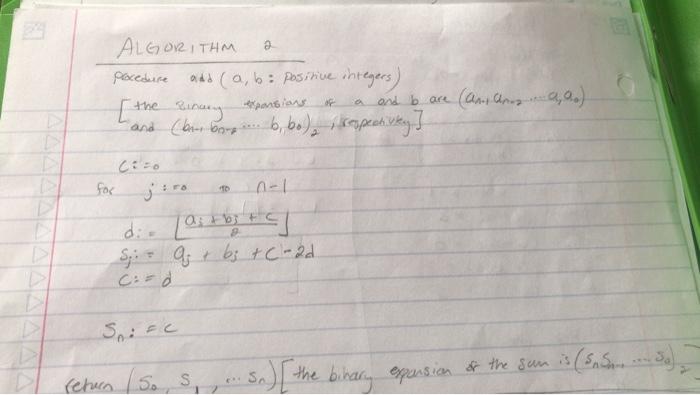 ALGORITHM 2
procedure add (a, b : positive integers)
[the binary expansions of a and b are (aₙ₋₁ aₙ₋₂ .... a₁ a₀)
and (bₙ₋₁ bₙ₋₂ .... b₁ b₀)₂, respectively]
c := 0
for j := 0 to n-1
d := ⌊(aⱼ + bⱼ + c)/2⌋
sⱼ := aⱼ + bⱼ + c - 2d
c := d
Sₙ := c
return (S₀, S₁, ... Sₙ) [the binary expansion of the sum is (SₙSₙ₋₁ .... S₀)₂